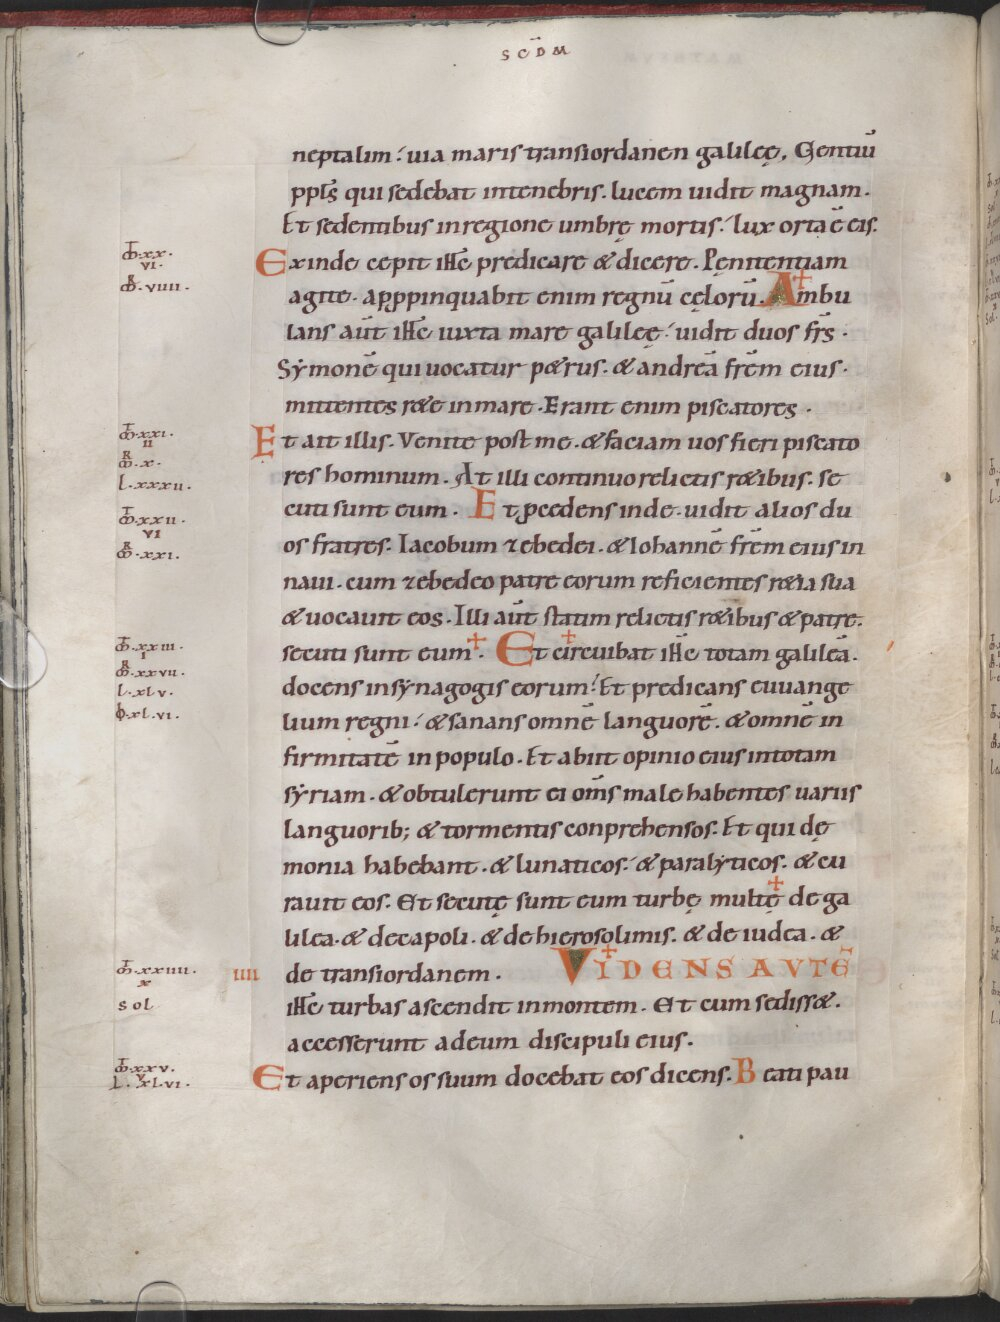 SCD̄M
neptalim: uia maris transiordanen galileę. Gentiū
ppl̄s qui sedebat intenebris. lucem uidit magnam.
Et sedentibus inregione umbrę mortis: lux orta ē eis.
Exinde cepit ih̄c predicare & dicere. Penitentiam
agite. appropinquabit enim regnū cęlorū. Ambu
lans aūt ih̄c iuxta mare galileę: uidit duos fr̄s.
Sẏmonē qui uocatur p&rus. & andreā fr̄em eius.
mittentes r&e inmare. Erant enim piscatores.
Et ait illis. Venite post me. & faciam uos fieri piscato
res hominum. At illi continuo relictis r&ibus. se
cuti sunt eum. Et ꝓcedens inde. uidit alios du
os fratres. Iacobum zebedei. & Iohannē fr̄em eius in
naui. cum zebedeo patre eorum reficientes r&ia sua
& uocauit eos. Illi aūt statim relictis r&ibus & patre.
secuti sunt eum. Et circuibat ih̄c totam galileā.
docens insẏnagogis eorum: Et predicans euuange
lium regni: & sanans omnē languorē. & omnē in
firmitatē in populo. Et abiit opinio eius intotam
sẏriam. & obtulerunt ei om̄s male habentes uariis
languorib; & tormentis conprehensos. Et qui dę
monia habebant. & lunaticos: & paralẏticos. & cu
rauit eos. Et secutę sunt eum turbę multę de ga
lilea. & decapoli. & de hierosolimis. & de iudea. &
de transiordanem. VIDENS AVTĒ
ih̄c turbas ascendit inmontem. Et cum sediss&.
accesserunt adeum discipuli eius.
Et aperiens os suum docebat eos dicens. Beati pau
.xx.
vi.
.viiii.
.xxi.
ii
.x.
l.xxxii.
.xxii.
vi
.xxi.
.xxiii.
i
.xxvii.
l.xlv.
.xl.vi.
.xxiiii.
x
iiii
sol
.xxv.
v
l.xl.vi.